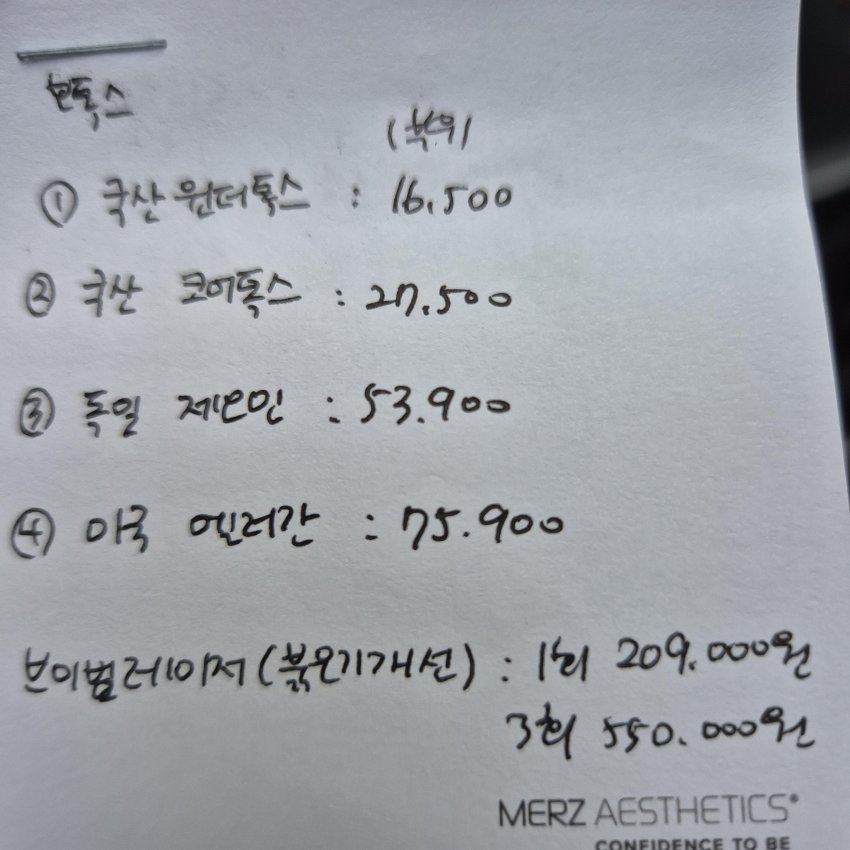 보톡스
1부위
① 국산 원더톡스 : 16,500
② 국산 코어톡스 : 27,500
③ 독일 제오민 : 53.900
④ 미국 엘러간 : 75.900
브이빔레이저(붉은기개선) : 1회 209.000원
3회 550.000원
MERZ AESTHETICS®
CONFIDENCE TO BE